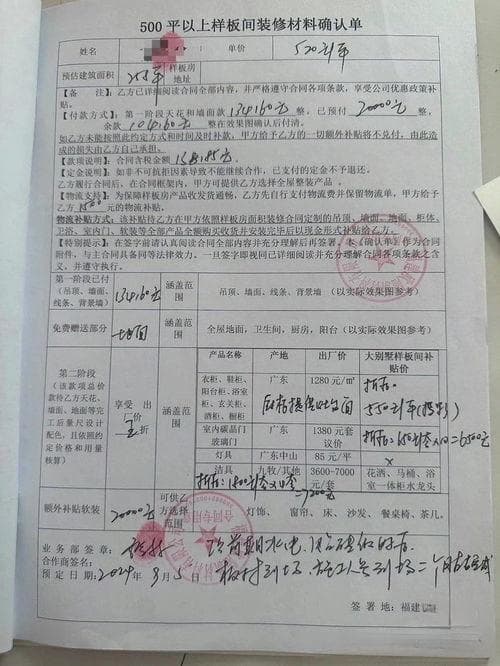 500 平以上样板间装修材料确认单
姓名 单价 520元/平
预估建筑面积 258平 样板房地址
【备 注】乙方已详细阅读合同全部内容,并严格遵守合同各项条款,享受公司优惠政策补贴。
【付款方式】第一阶段天花和墙面款134160元整,已预付20000元整,
余款 整在效果图确认后付清。
如乙方未能按照此约定方式和时间及时补款,甲方给予乙方的一切额外补贴将不兑付,由此造成的损失由乙方自己承担。
【款项说明】合同含税金额
【定金说明】如非不可抗拒因素导致不能继续合作,已支付的定金不予退还。
乙方履行合同后,在合同框架内,甲方可提供乙方选择全屋整装产品。
【物流支持】为保障样板房产品收发货通畅,乙方先自行支付物流费并保留物流单,甲方给予乙方 元的物流补贴。
物流补贴方式:该补贴待乙方在甲方依照样板房面积装修合同定制的吊顶、墙面、地面、柜体、卫浴、室内门、软装等全部产品全额购买收货并安装完毕后以现金形式补贴给乙方。
【特别提示】在签字前请认真阅读合同全部内容并充分理解后再签署,本《确认单》作为合同附件,与主合同具备同等法律效力。一旦签字即视同已详细阅读并充分理解合同各项条款之含义,并遵守执行。
第一阶段已付(吊顶、墙面、线条、背景墙) 134160元 涵盖范围 吊顶、墙面、线条、背景墙(以实际效果图参考)
免费赠送部分 地面 涵盖范围 全屋地面,卫生间,厨房,阳台(以实际效果图参考)
第二阶段(该款项总价款待乙方天花、墙面、地面等完工后量尺设计配色,且依照约定价格和用量核算) 享受出厂价 折 涵盖范围
产品名称 产地 出厂价 大别墅样板间补贴价
衣柜、鞋柜、阳台柜、浴室柜、玄关柜、酒柜、橱柜 广东 1280元/㎡ 折后: 550元/平(投影)
室内碳晶门玻璃门 广东 1380元/套议价 折后:650元/套×10=6500元
灯具 广东中山 85元/平 ×
洁具 九牧/其他 3600-7000元/套 花洒、马桶、浴室一体柜水龙头
折后:1800元/套×4套=7200元
额外补贴软装 20000元 可供乙方选择范围 灯饰、窗帘、床、沙发、餐桌椅、茶几。
业务部签章:
合作商签名:
预定日期:2024年3月5日
签署地:福建